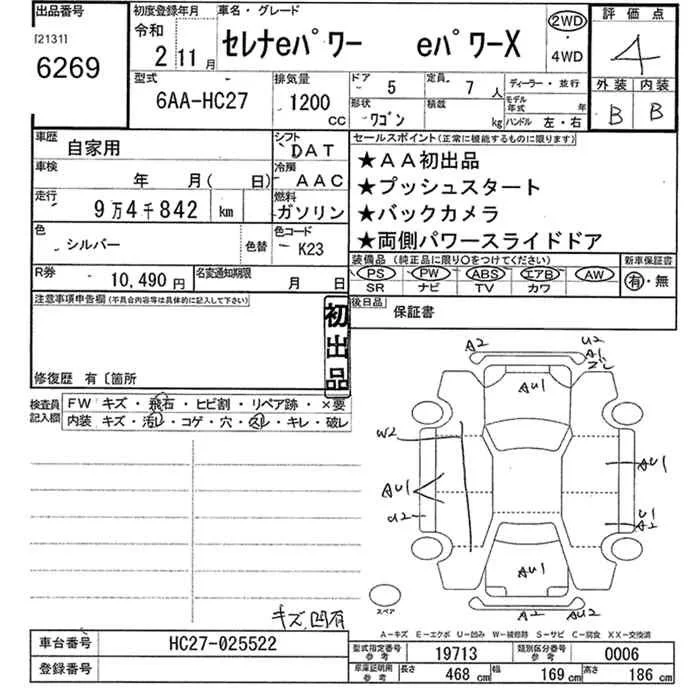 出品番号
[2131]
6269
初度登録年月
令和
2 11月
車名・グレード
セレナeパワー eパワーX
2WD
・
4WD
評価点
4
外装 内装
B B
型式
6AA-HC27
排気量
1200
cc
ドア
5
定員
7人
形状
ワゴン
積載
kg
ディーラー・並行
モデル年式 年
ハンドル 左・右
車歴
自家用
シフト
DAT
車検
年 月( 日)
冷房
AAC
走行
9万4千842 km
燃料
ガソリン
色
シルバー
色替
色コード
K23
R券
10,490円
名変通知期限
月 日
セールスポイント(正常に機能するものに限ります)
★AA初出品
★プッシュスタート
★バックカメラ
★両側パワースライドドア
装備品 (純正品に限り○をつけてください)
PS PW ABS エアB AW
SR ナビ TV カワ
新車保証書
有・無
後日品
保証書
注意事項申告欄(不具合内容等は具体的に記入して下さい)
初出品
修復歴 有〔箇所
検査員記入欄
FW キズ・飛石・ヒビ割・リペア跡・×要
内装 キズ・汚レ・コゲ・穴・スレ・キレ・破レ
A2
U2
A1
AU1
W2
AU1
AU1
U1
A2
AU1
スペア
A2
AU2
キズ,凹有
A-キズ E-エクボ U-凹み W-補修跡 S-サビ C-腐食 XX-交換済
車台番号
HC27-025522
登録番号
型式指定番号
参考
19713
類別区分番号
参考
0006
車庫証明用
参考
長さ
468 cm
幅
169 cm
高さ
186 cm